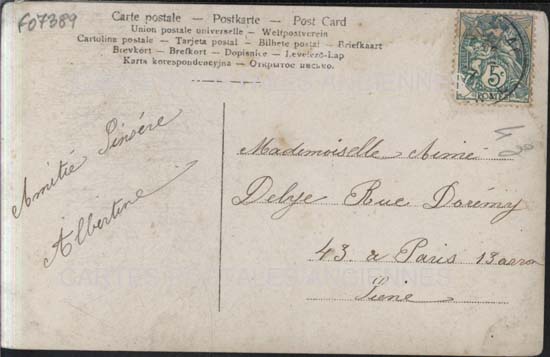 F07389
Carte postale – Postkarte – Post Card
Union postale universelle – Weltpostverein
Cartolina postale – Tarjeta postal – Bilhete postal – Briefkaart
Brevkort – Brefkort – Dopisnice – Levelező-Lap
Karta korespondencyjna – Открытое письмо.
5c
Amitié Sincère
Albertine
Mademoiselle Aimé
Delye Rue Darémy
43 a Paris 13
CARTES POSTALES ANCIENNES